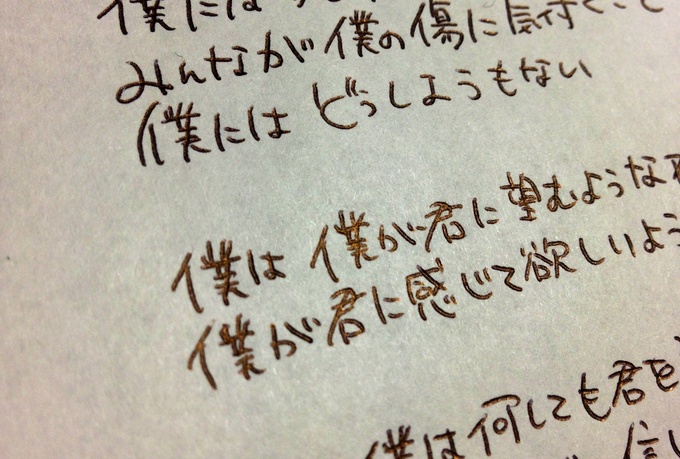 僕には
みんなが僕の傷に気付くこと
僕には どうしようもない
僕は 僕が君に望むような
僕が君に感じて欲しいよう
僕は何しても君を
信じ